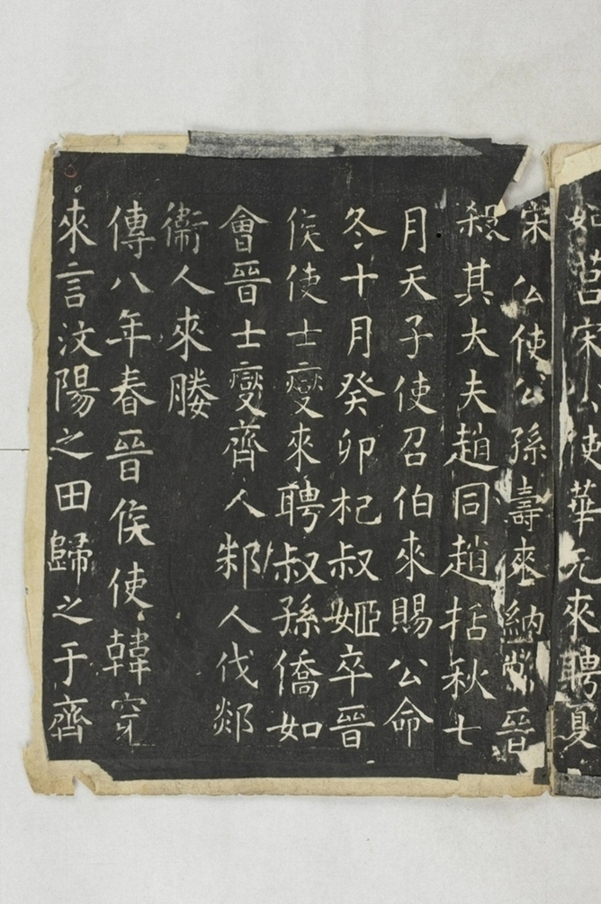 如莒宋公使華元來聘夏
宋公使公孫壽來納幣晉
殺其大夫趙同趙括秋七
月天子使召伯來賜公命
冬十月癸卯杞叔姬卒晉
侯使士燮來聘叔孫僑如
會晉士燮齊人邾人伐郯
衛人來媵
傳八年春晉侯使韓穿
來言汶陽之田歸之于齊